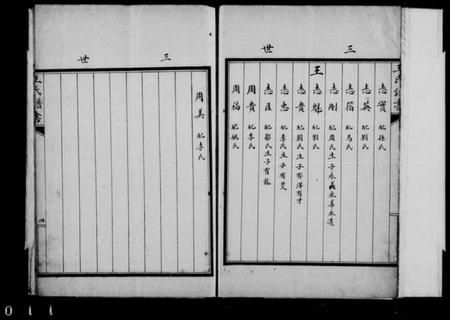 三世
志寳 配孫氏
志英 配劉氏
志蒞 配馬氏
志剛 配周氏生子永義永善永遠
王
志魁 配刘氏
志貴 配劉氏生子有澤有才
志忠 配李氏生子有
志臣 配鄒氏生子有龍
周貴 配李氏
周福 配姚氏
三世
周美 配李氏
王氏譜書
四
011